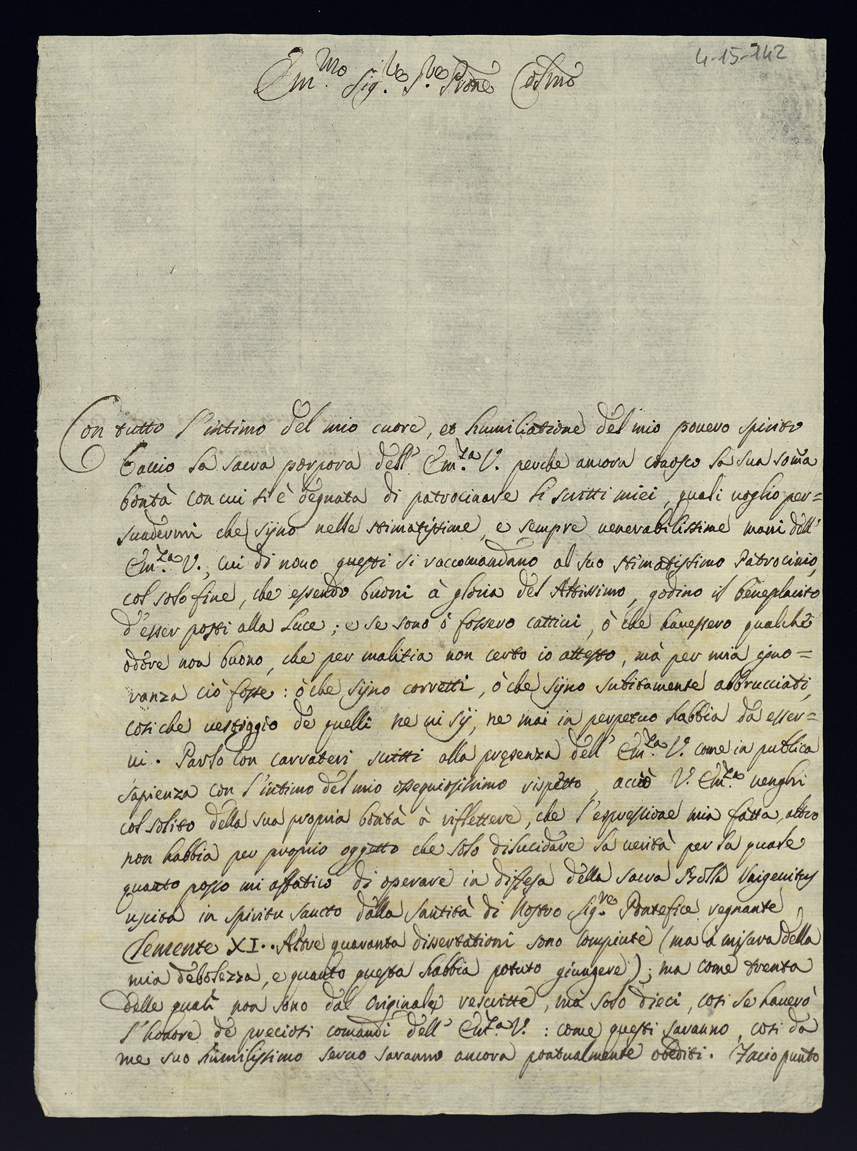 4-15-142
Em.mo Sig.re P.rone Col.mo
Con tutto l'intimo del mio cuore, et humiliatione del mio povero spirito
baccio la sacra porpora dell' Em.za V. perche ancora conosco la sua soma
bontà con cui si è degnata di patrocinare li scritti miei, quali voglio per=
suadermi che sijno nelle stimatissime, e sempre venerabilissime mani dell'
Em.za V., cui di novo questi si raccomandano al suo stimatissimo Patrocinio,
col solo fine, che essendo buoni à gloria del Altissimo, godino il beneplacito
d'esser posti alla Luce; e se sono ò fossero cattivi, ò che havessero qualche
odore non buono, che per malitia non certo io attesto, mà per mia igno=
ranza ciò fosse: ò che sijno corretti, ò che sijno subitamente abbrucciati,
così che vestiggio de quelli ne vi sij, ne mai in perpetuo habbia da esser=
vi. Parlo con carrateri scritti alla presenza dell' Em.za V. come in publica
sapienza con l'intimo del mio ossequiosissimo rispetto, acciò V. Em.za venghi
col solito della sua propria bontà à riflettere, che l'espressione mia fatta, altro
non habbia per proprio oggetto che solo dilucidare la verità per la quale
quanto posso mi affatico di operare in diffesa della sacra Bolla Unigenitus
uscita in spiritu sancto dalla santità di Nostro Sig.re Pontefice regnante
Clemente XI.. Altre quaranta dissertationi sono compiute (ma à misura della
mia debolezza, e quanto questa habbia potuto giungere); ma come trenta
delle quali non sono dal Originale rescritte, mà solo dieci, così se haverò
l'honore de preciosi comandi dell' Em.za V.: come questi saranno, così da
me suo humilissimo servo saranno ancora pontualmente obediti. Facio punto